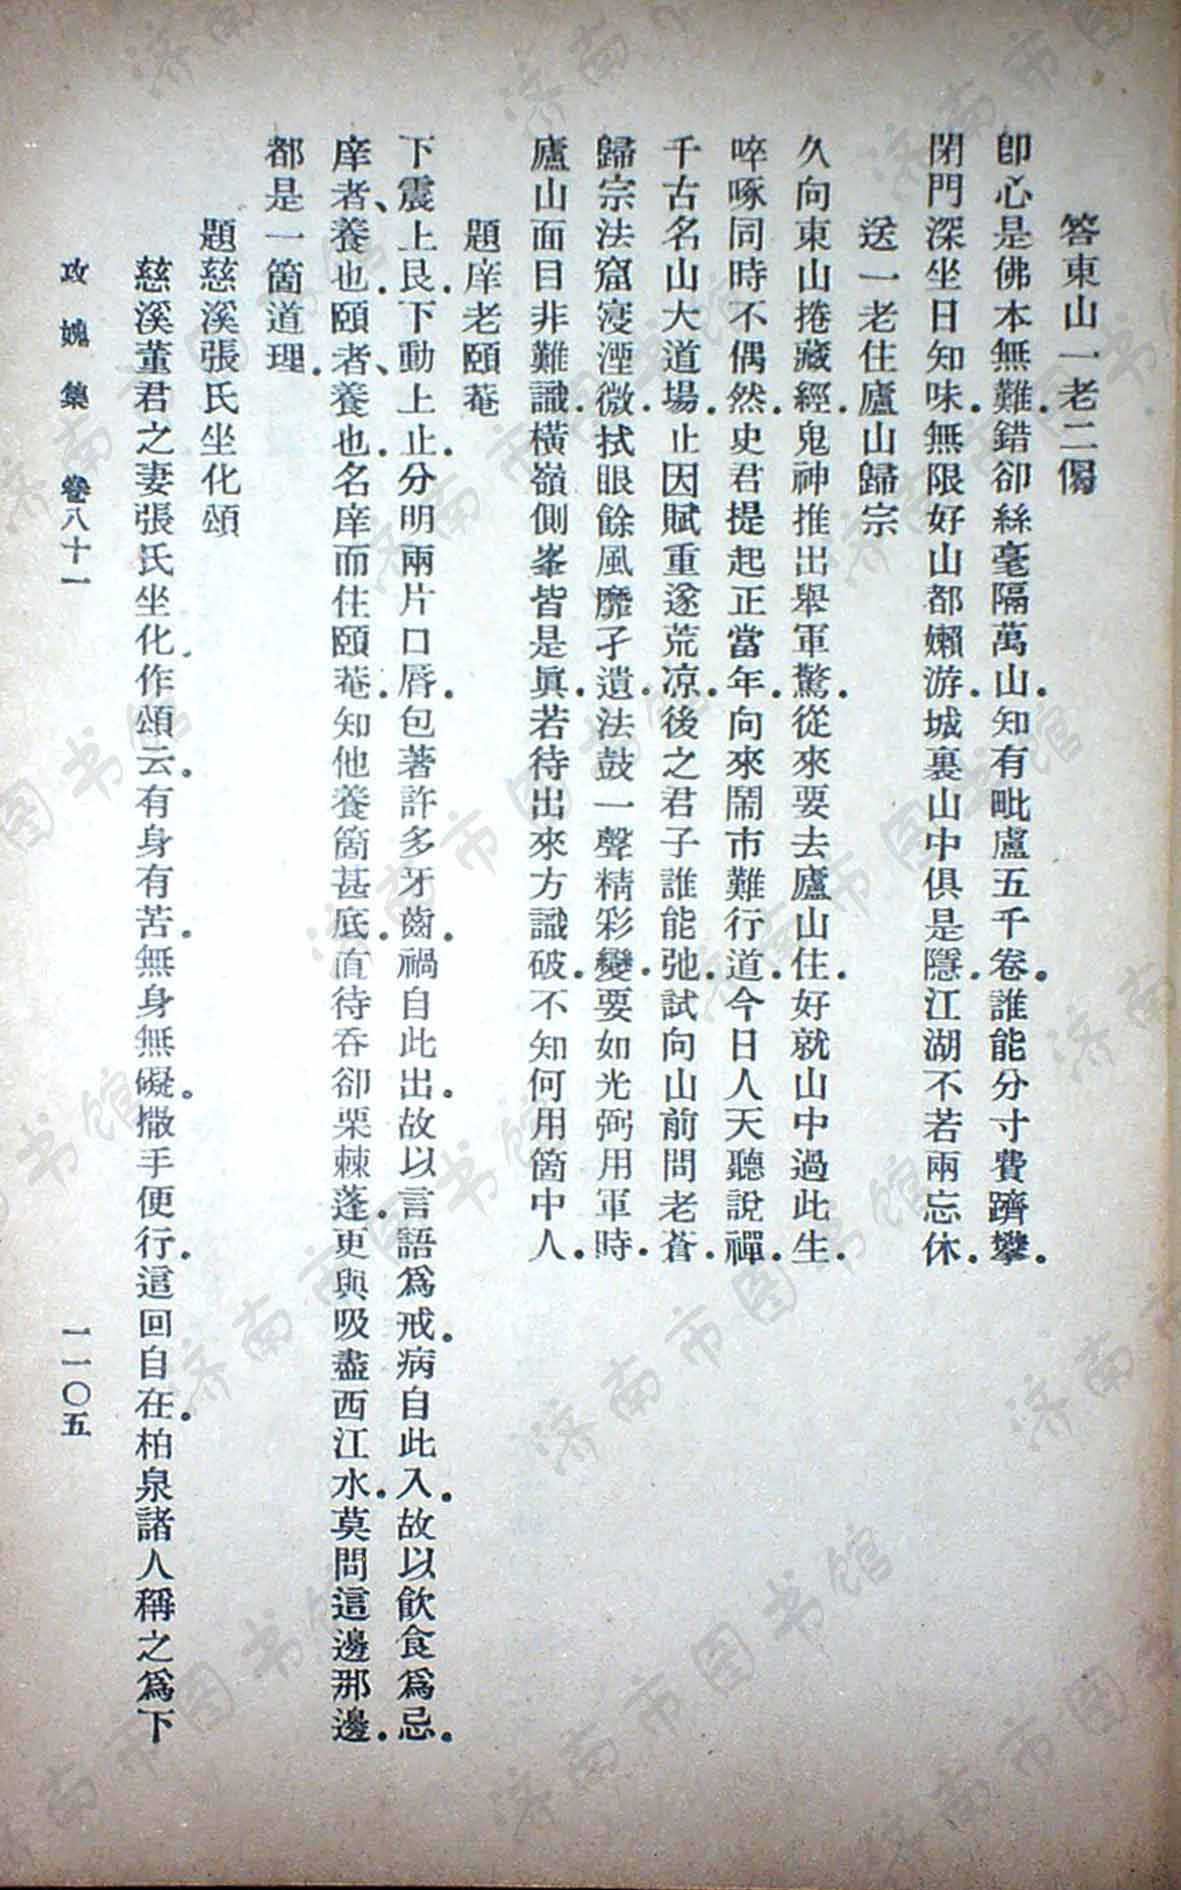 答東山一老二偈
卽心是佛本無難．錯卻絲毫隔萬山．知有毗盧五千卷．誰能分寸費躋攀．
閉門深坐日知味．無限好山都嬾游．城裏山中俱是隱．江湖不若兩忘休．
送一老住廬山歸宗
久向東山捲藏經．鬼神推出舉軍驚．從來要去廬山住．好就山中過此生．
啐啄同時不偶然．史君提起正當年．向來鬧市難行道．今日人天聽說禪．
千古名山大道場．止因賦重遂荒凉．後之君子誰能弛．試向山前問老蒼．
歸宗法窟寖湮微．拭眼餘風靡孑遺．法鼓一聲精彩變．要如光弼用軍時．
廬山面目非難識．橫嶺側峯皆是眞．若待出來方識破．不知何用箇中人．
題庠老頤菴
下震上艮．下動上止．分明兩片口脣．包著許多牙齒．禍自此出．故以言語爲戒．病自此入．故以飲食爲忌．
庠者、養也．頤者、養也．名庠而住頤菴．知他養箇甚底．直待吞卻栗棘蓬．更與吸盡西江水．莫問這邊那邊．
都是一箇道理．
題慈溪張氏坐化頌
慈溪董君之妻張氏坐化．作頌云．有身有苦．無身無礙．撒手便行．這回自在．柏泉諸人稱之爲下
攻媿集 卷八十一 一一〇五
济南市图书馆